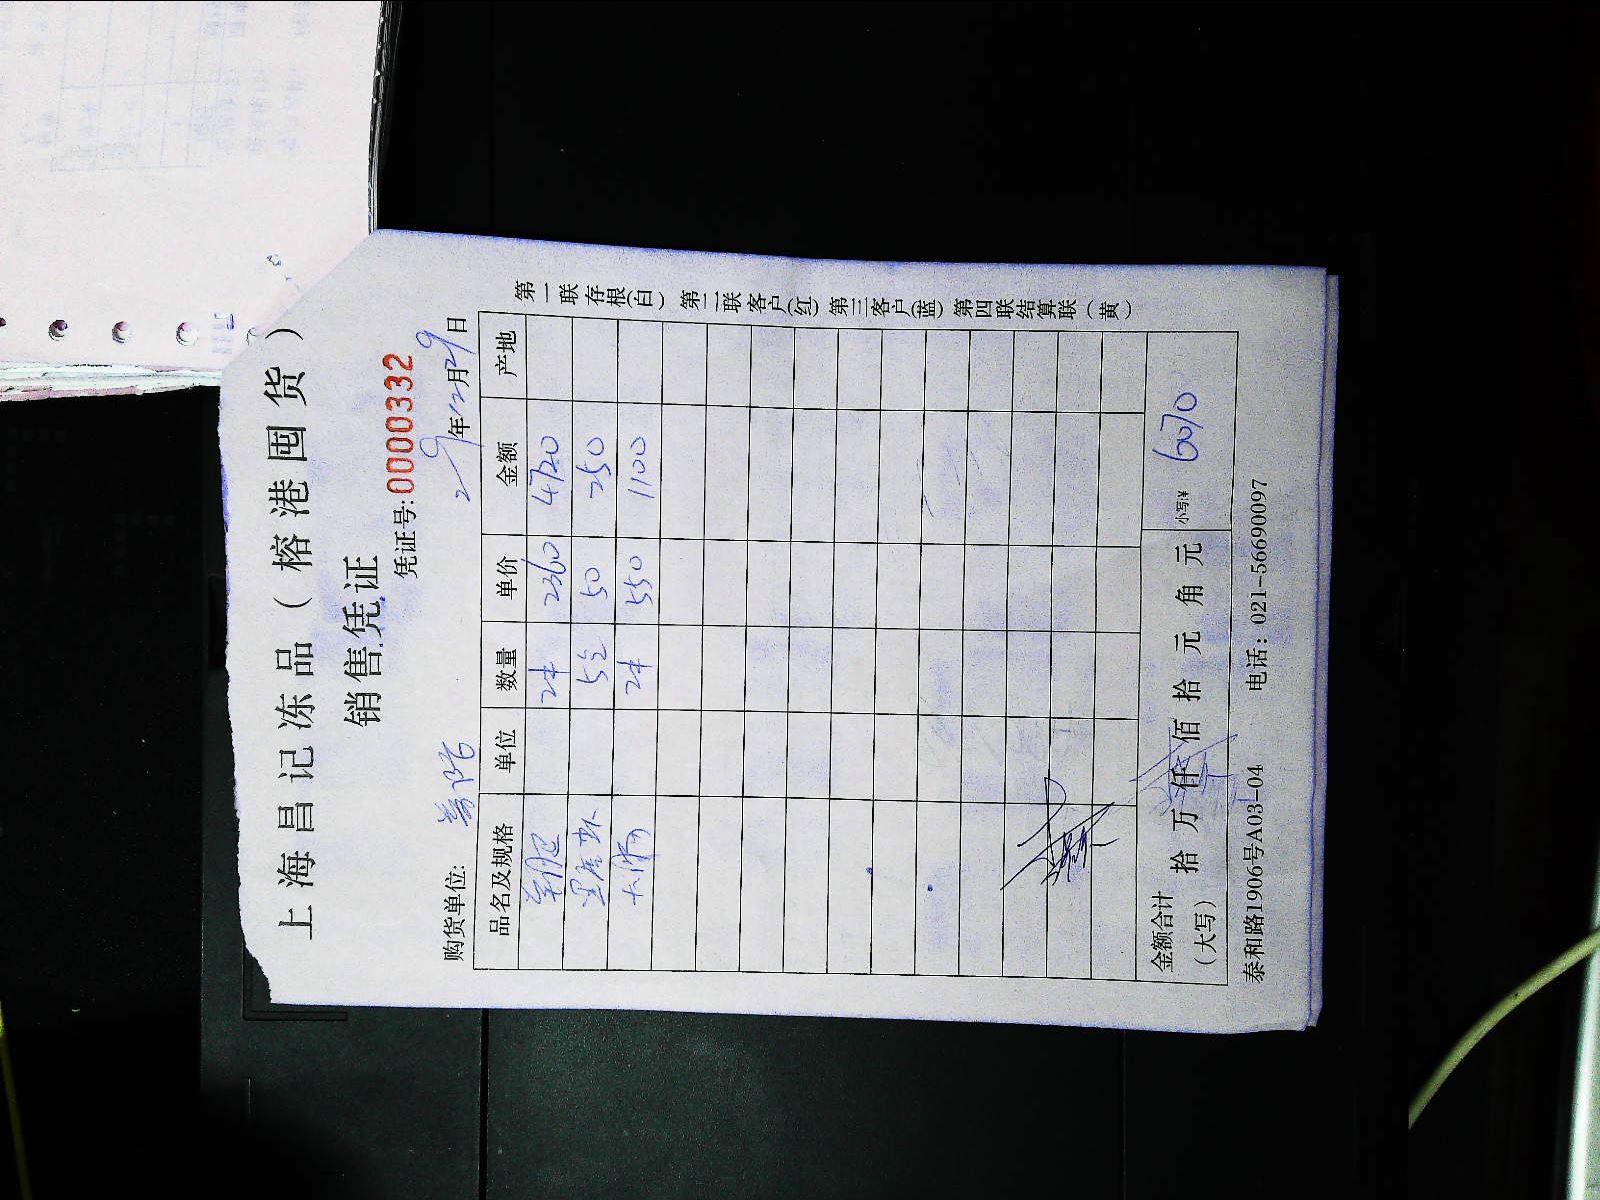 上海昌记冻品（榕港囤货）
销售凭证
凭证号:0000332
购货单位: 年12月29日
品名及规格 单位 数量 单价 金额 产地
2件 2360 4720
5包 50 250
2件 550 1100
金额合计（大写） 拾 万 仟 佰 拾 元 角 元 小写:¥ 6070
泰和路1906号A03-04 电话：021-56690097
第一联 存根（白） 第二联 客户（红） 第三客户（蓝） 第四联结算联（黄）